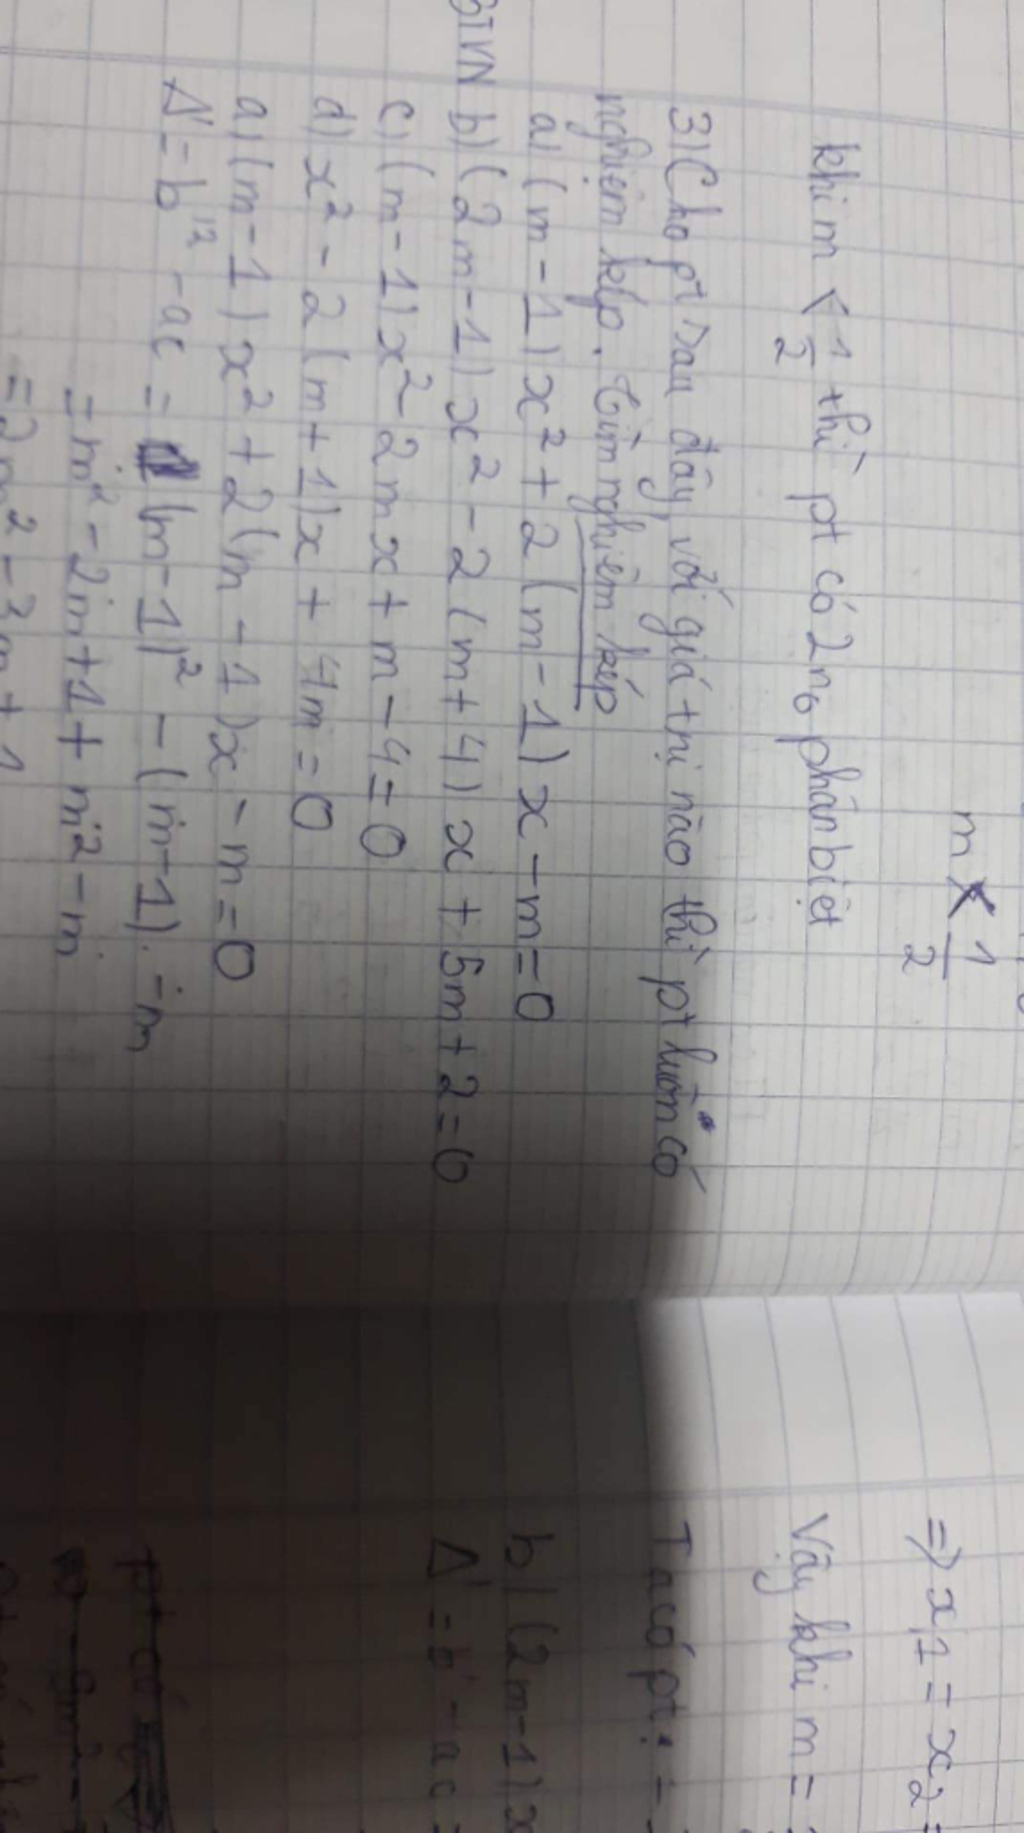 m < 1/2
khi m < 1/2 thì pt có 2 n₀ phân biệt
3) Cho pt sau đây, với giá trị nào thì pt luôn có
nghiệm kép. Tìm nghiệm kép
a) (m - 1) x² + 2 (m - 1) x - m = 0
BTVN b) (2m - 1) x² - 2 (m + 4) x + 5m + 2 = 0
c) (m - 1) x² - 2mx + m - 4 = 0
d) x² - 2 (m + 1) x + 4m = 0
a) (m - 1) x² + 2 (m - 1) x - m = 0
Δ' = b'² - ac = (m - 1)² - (m - 1). -m
= m² - 2m + 1 + m² - m
= 2m² - 3m + 1
=> x₁ = x₂ =
Vậy khi m =
Ta có pt: -
b) (2m - 1) x
Δ' = b' - ac =
pt có